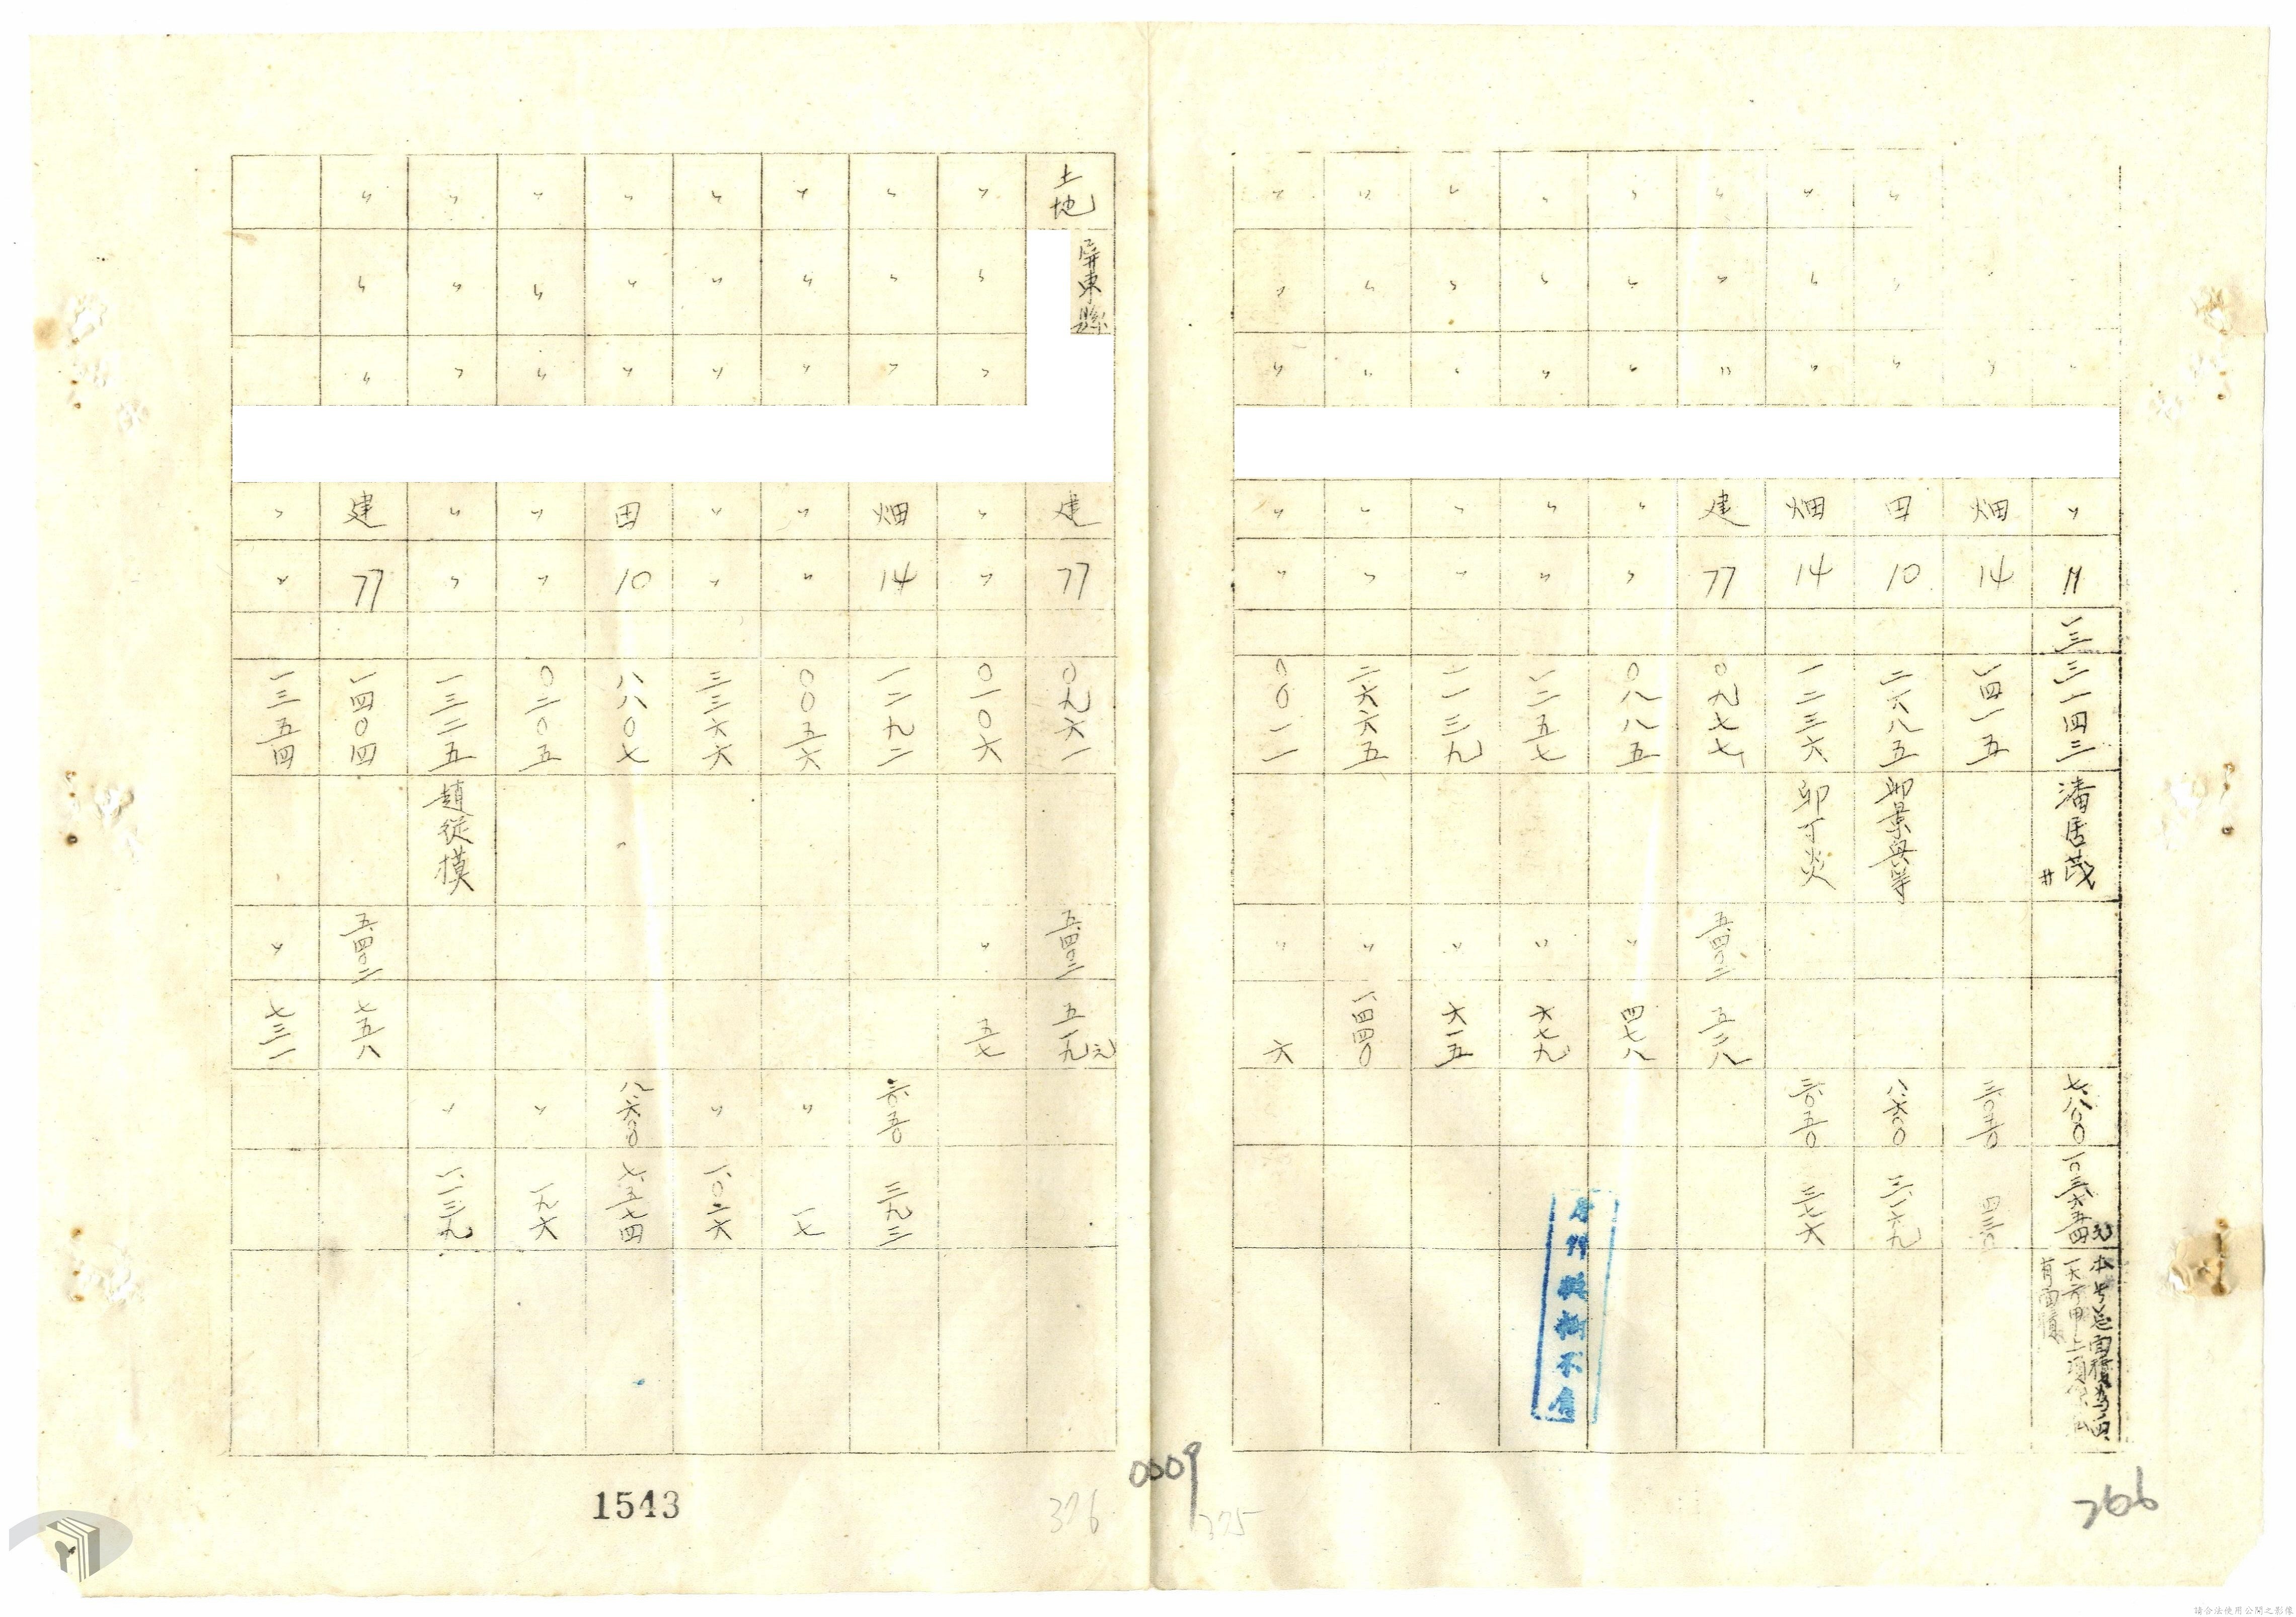 〃 11 一三三一四三 潘居茂 七八〇〇 一〇三六五四元
畑 14 一四一五 三〇五〇 四三〇
〃 〃 〃 田 10 二六八五 八六〇〇
〃 〃 〃 畑 14 一二三六 卯丁炎 三〇五〇 三七六
〃 〃 〃 建 77 〇九七七 五四〇二 五二八
〃 〃 〃 〃 〃 〇八八五 〃 四七八
〃 〃 〃 〃 〃 一二五七 〃 六七九
〃 〃 〃 〃 〃 一一三九 〃 六一五
〃 〃 〃 〃 〃 二六六五 〃 一、四四〇
〃 〃 〃 〃 〃 〇〇一一 〃 六
266
325
0009
土地 屏東縣 建 77 〇九六一 五四〇二 五一九元
〃 〃 〃 〃 〃 〇一〇六 〃 五七
〃 〃 〃 畑 14 一二九二 三〇五〇 三九三
〃 〃 〃 〃 〃 〇〇五六 〃 一七
〃 〃 〃 〃 〃 三三六六 〃 一、〇二六
〃 〃 〃 田 10 八八〇七 八六〇〇 七五七四
〃 〃 〃 〃 〃 〇二〇五 〃 一九六
〃 〃 〃 〃 〃 一三二五 趙從摸 〃 一、一三九
〃 〃 〃 建 77 一四〇四 五四〇二 七五八
〃 〃 一三五四 〃 七三一
326
1543
請合法使用公開之影像